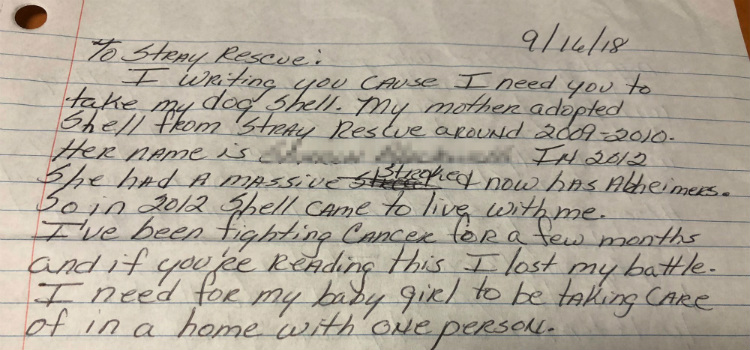 9/16/18
To Stray Rescue:
I writing you cause I need you to
take my dog Shell. My mother adopted
Shell from Stray Rescue around 2009-2010.
Her name is In 2012
She had a massive stroked now has Alzheimers.
So in 2012 Shell came to live with me.
I've been fighting cancer for a few months
and if you're reading this I lost my battle.
I need for my baby girl to be taking care
of in a home with one person.